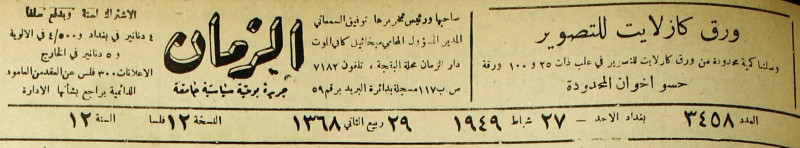 ورق كازلايت للتصوير
وصلتنا كمية محدودة من ورق كازلايت للتصوير في علب ذات ٢٥ و ١٠٠ ورقة
حسو اخوان المحدودة
صاحبها ورئيس تحريرها توفيق السمعاني
المدير المسؤول المحامي ميخائيل كافي الموت
دار الزمان محلة البقجة ، تلفون ٧١٨٢
ص ب ١١٧ مسجلة بدائرة البريد برقم ٥٩
الزمان
جريدة يومية سياسية جامعة
الاشتراك لسنة ويدفع سلفا
٤ دنانير في بغداد و ٤/٥٠٠ في الالوية
و ٥ دنانير في الخارج
الاعلانات ٣٠٠ فلس عن العقد من العامود
الدائمية يراجع بشأنها الادارة
العدد ٣٤٥٨ بغداد الاحد — ٢٧ شباط ١٩٤٩ ٢٩ ربيع الثاني ١٣٦٨ النسخة ١٢ فلسا السنة ١٢